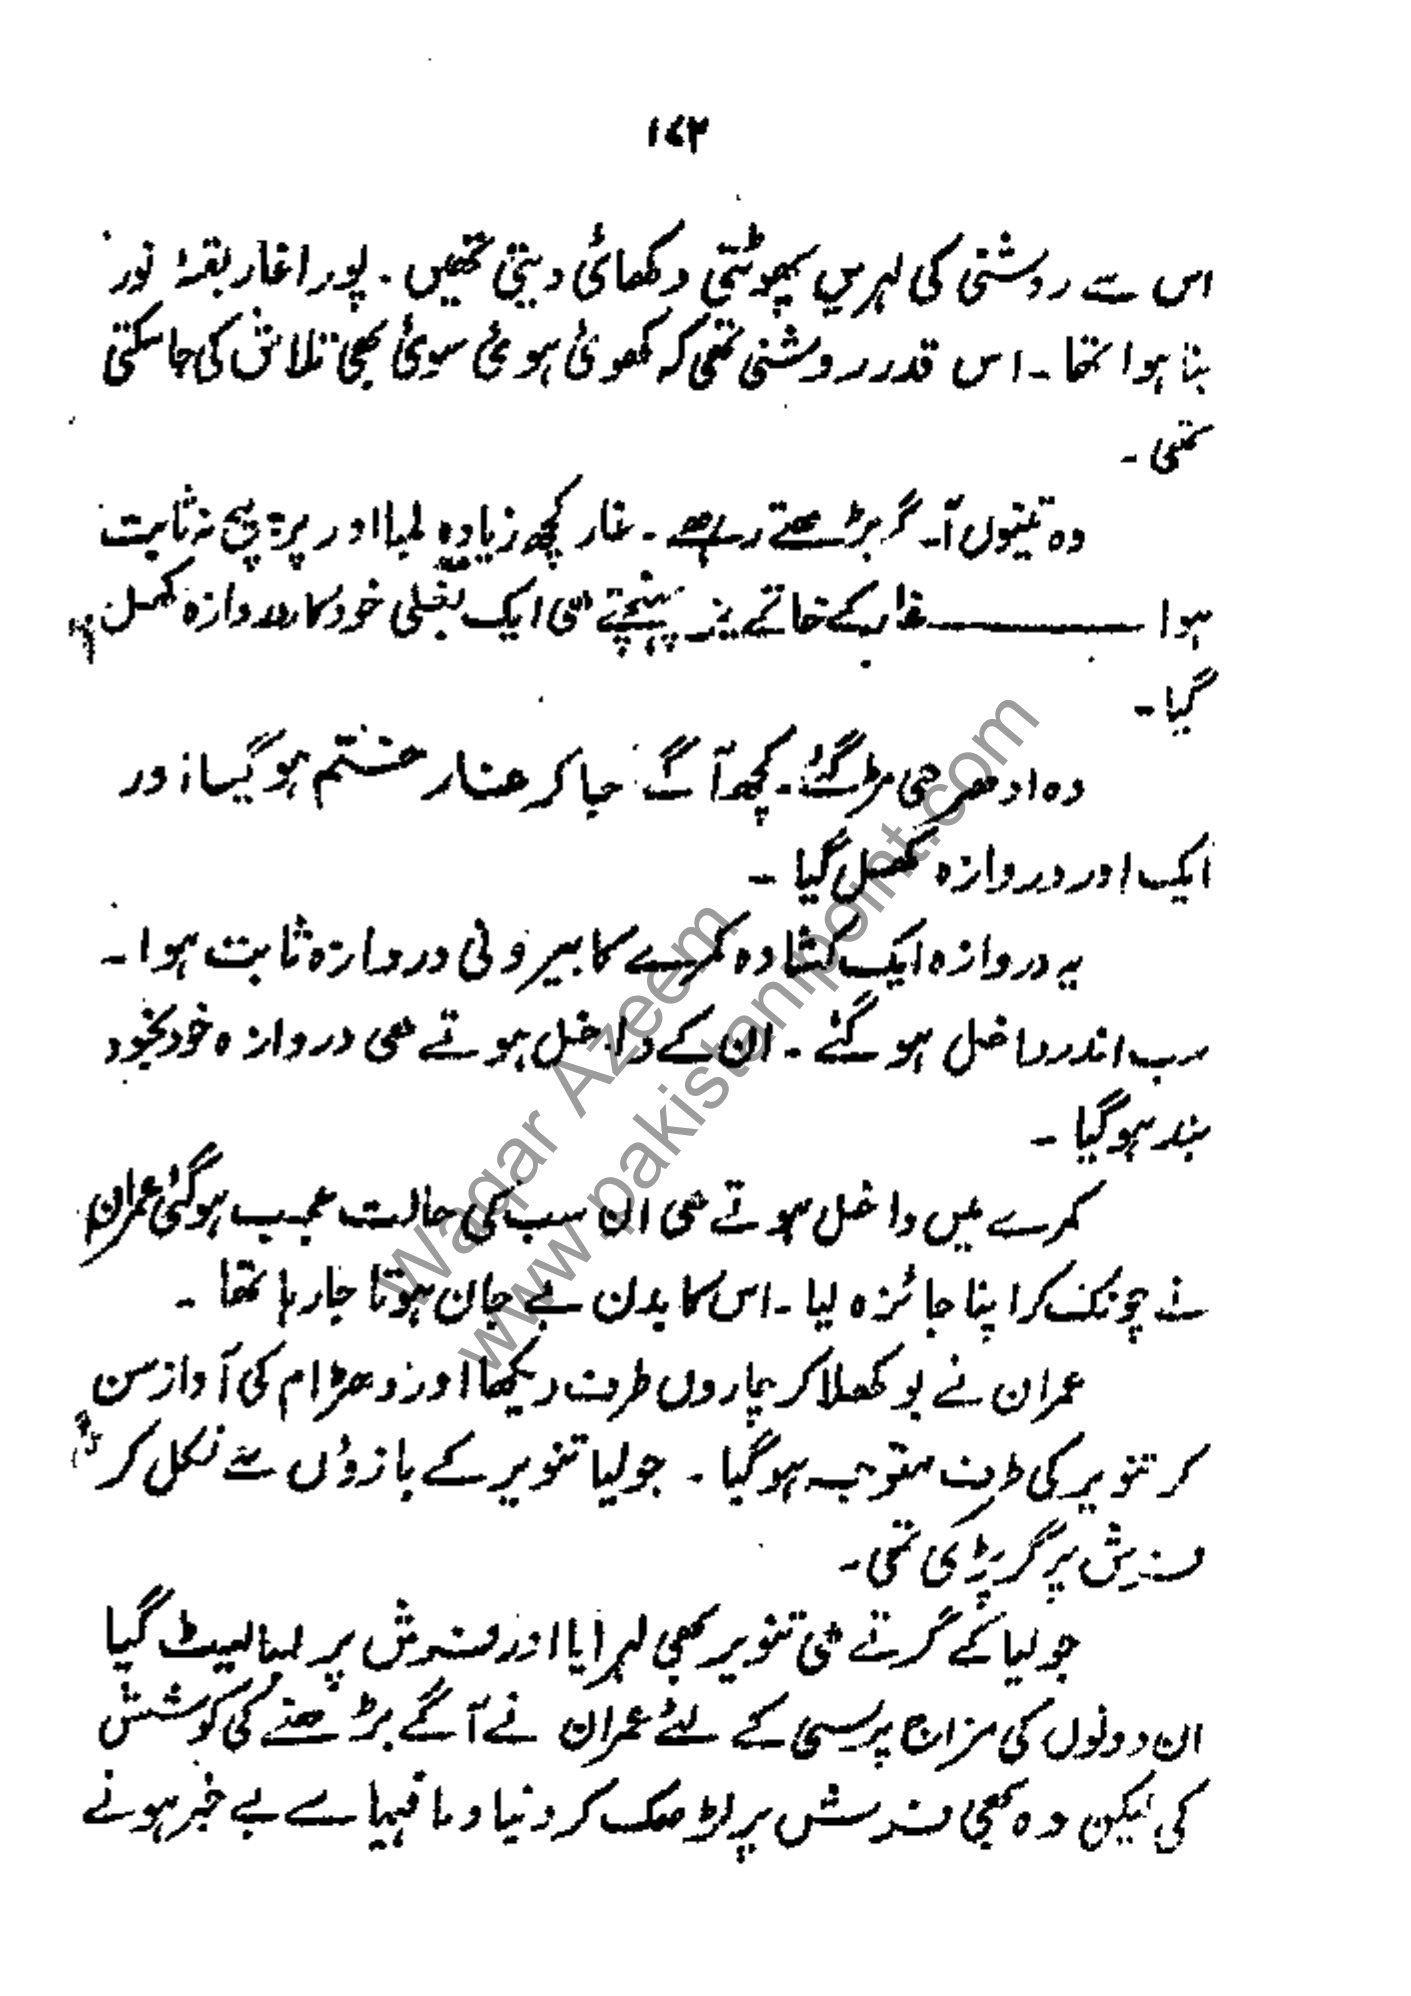 ۱۷۲
اس سے روشنی کی لہریں پھوٹتی دکھائی دیتی تھیں۔ پورا غار بقۂ نور
بنا ہوا تھا۔ اس قدر روشنی تھی کہ کھوئی ہوئی سوئی بھی تلاش کی جا سکتی
تھی۔
وہ تینوں آگے بڑھتے رہے۔ غار کچھ زیادہ لمبا اور پر پیچ نہ ثابت
ہوا ــــــــ غار کے خاتمے پر پہنچتے ہی ایک بغلی خود کار دروازہ کھل
گیا۔
وہ ادھر ہی مڑ گئے۔ کچھ آگے جا کر غار ختم ہو گیا اور
ایک اور دروازہ کھل گیا۔
یہ دروازہ ایک کشادہ کمرے کا بیرونی دروازہ ثابت ہوا۔
سب اندر داخل ہو گئے۔ ان کے داخل ہوتے ہی دروازہ خود بخود
بند ہو گیا۔
کمرے میں داخل ہوتے ہی ان سب کی حالت عجیب ہو گئی عمران
نے چونک کر اپنا جائزہ لیا۔ اس کا بدن بے جان ہوتا جا رہا تھا۔
عمران نے بوکھلا کر چاروں طرف دیکھا اور دھڑام کی آواز سن
کر تنویر کی طرف متوجہ ہو گیا۔ جولیا تنویر کے بازوؤں سے نکل کر
فرش پر گر پڑی تھی۔
جولیا کے گرتے ہی تنویر بھی لہرایا اور فرش پر لمبا لیٹ گیا
ان دونوں کی مزاج پرسی کے لئے عمران نے آگے بڑھنے کی کوشش
کی لیکن وہ بھی فرش پر لڑھک کر دنیا و مافیہا سے بے خبر ہونے
Waqar Azeem
www.pakistanipoint.com